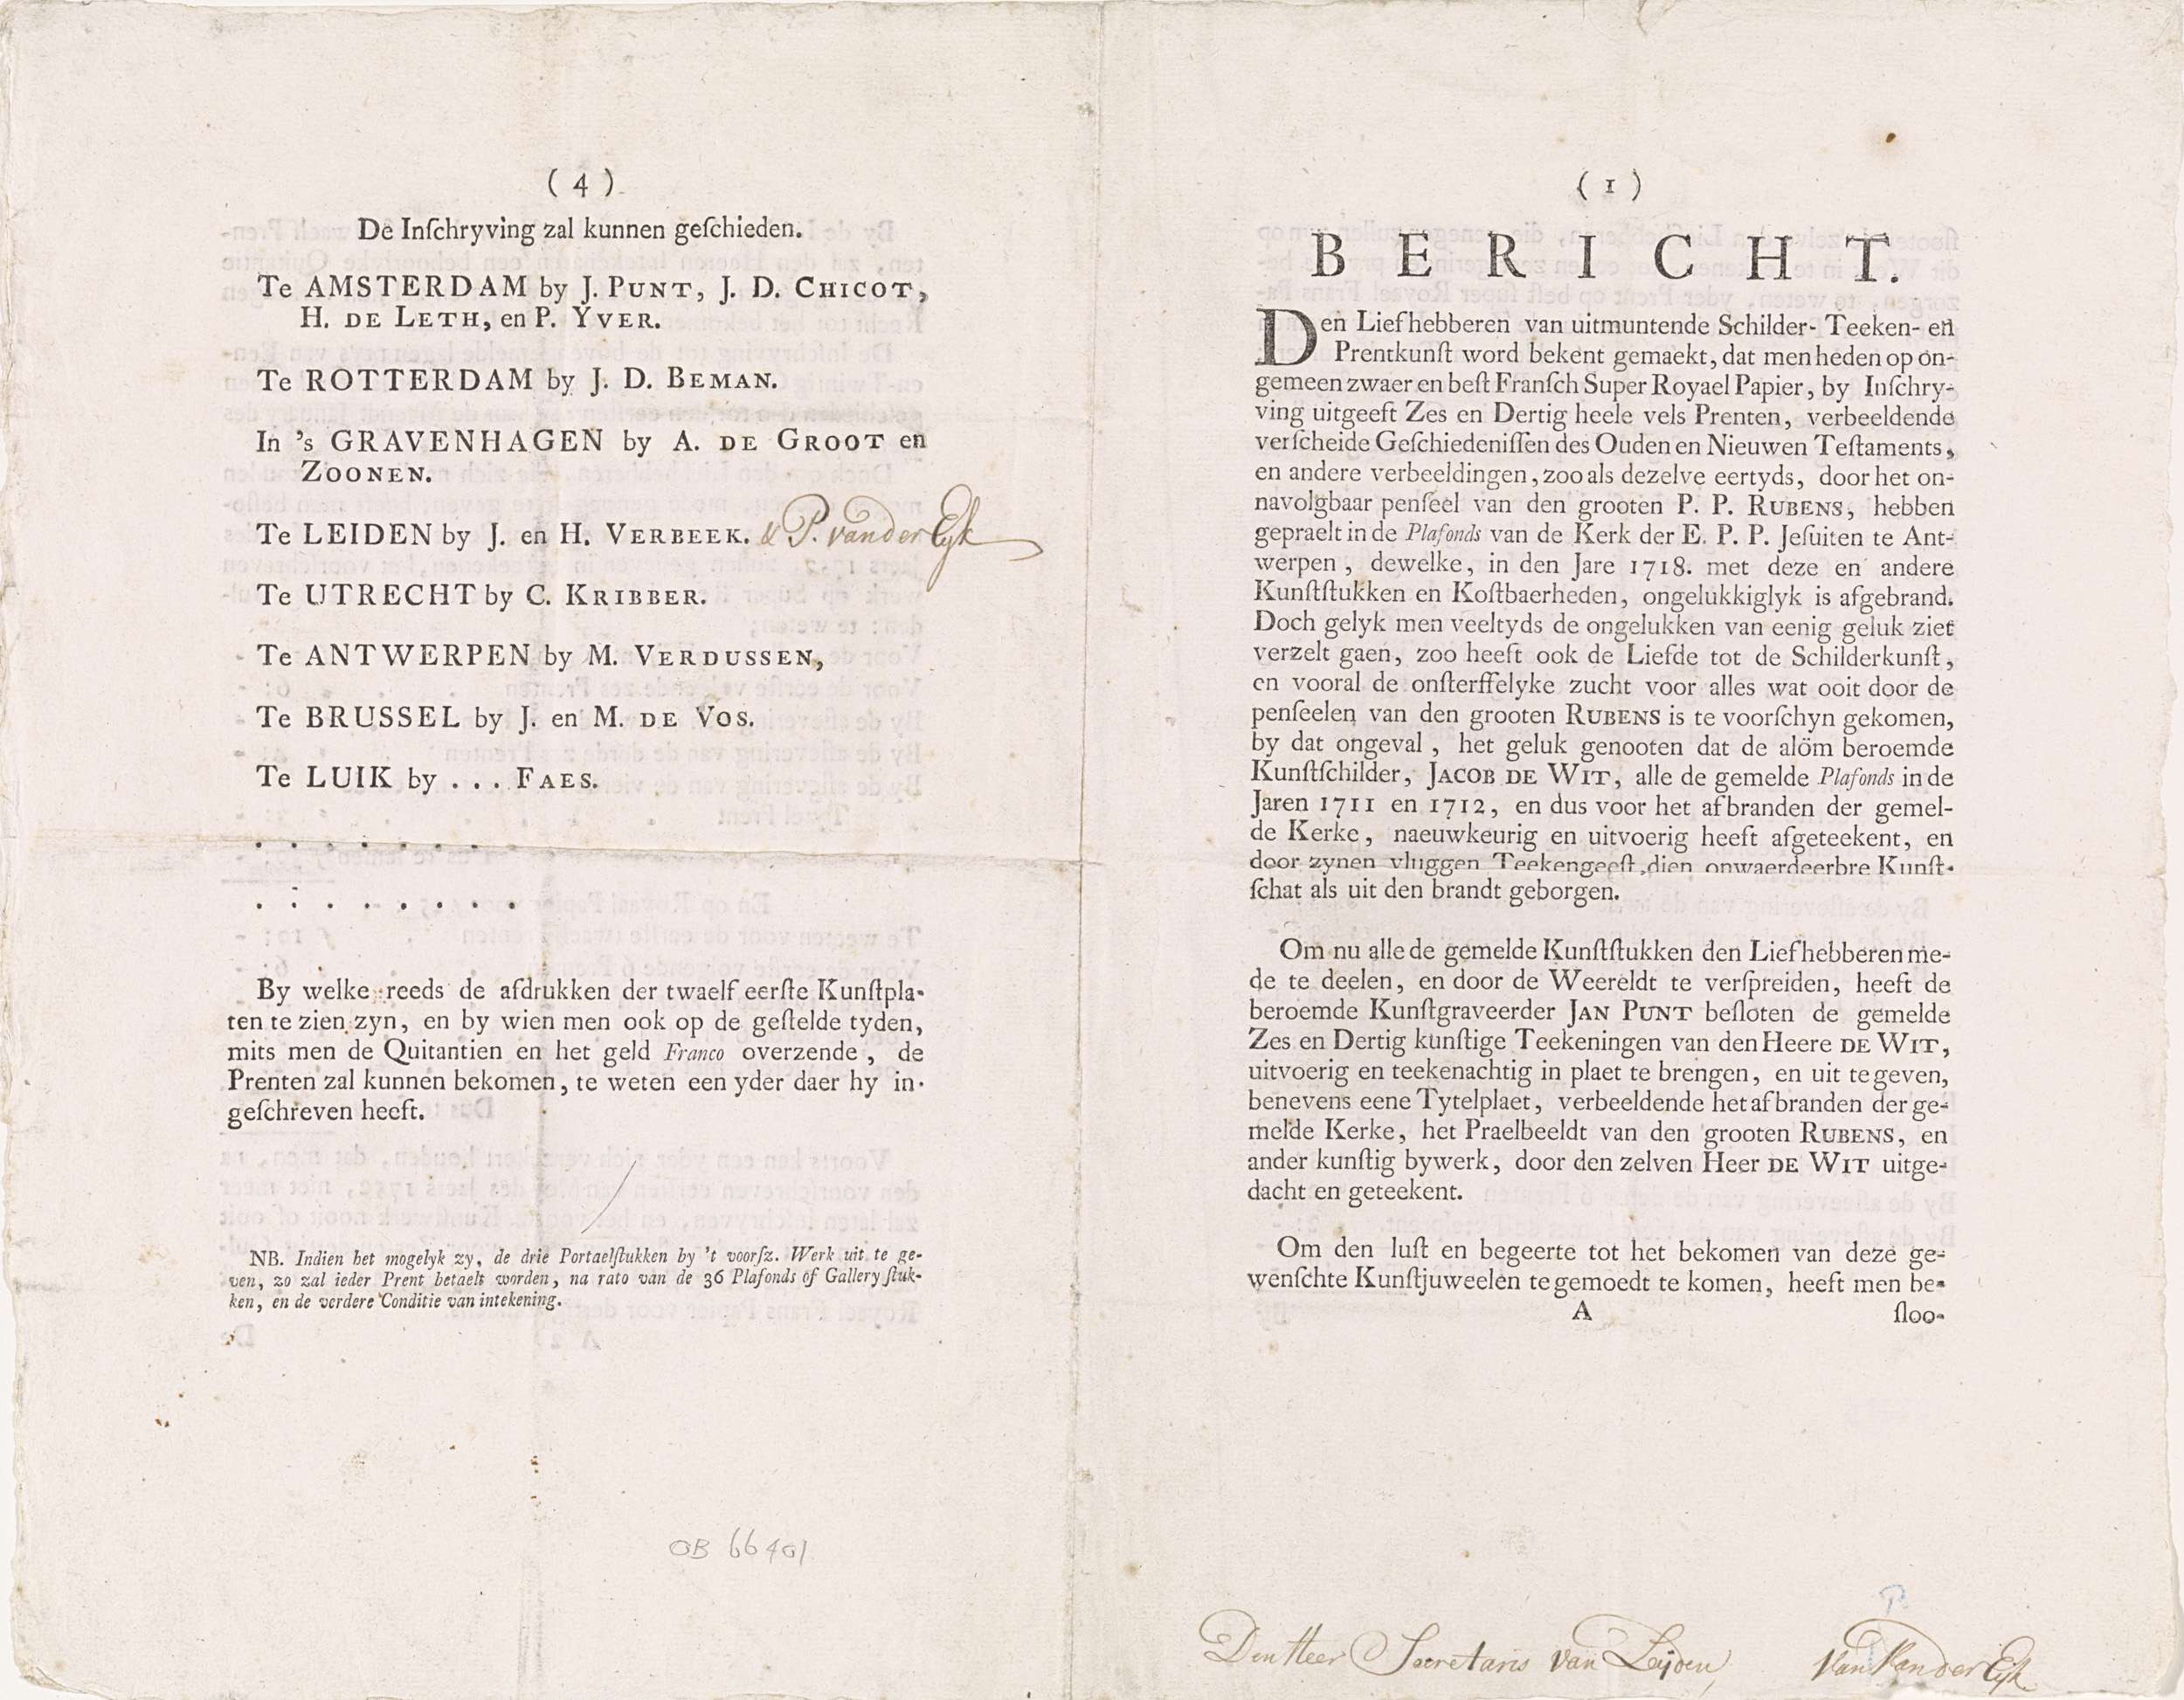 ( 4 )
De Inſchryving zal kunnen geſchieden.
Te AMSTERDAM by J. PUNT, J. D. CHICOT,
H. DE LETH, en P. YVER.
Te ROTTERDAM by J. D. BEMAN.
In 's GRAVENHAGEN by A. DE GROOT en
ZOONEN.
Te LEIDEN by J. en H. VERBEEK. & P. vander Eyk
Te UTRECHT by C. KRIBBER.
Te ANTWERPEN by M. VERDUSSEN,
Te BRUSSEL by J. en M. DE VOS.
Te LUIK by . . . FAES.
. . . . . . .
. . . . . . . .
By welke reeds de afdrukken der twaelf eerſte Kunſtpla-
ten te zien zyn, en by wien men ook op de geſtelde tyden,
mits men de Quitantien en het geld Franco overzende, de
Prenten zal kunnen bekomen, te weten een yder daer hy in-
geſchreven heeft.
NB. Indien het mogelyk zy, de drie Portaelſtukken by 't voorſz. Werk uit te ge-
ven, zo zal ieder Prent betaelt worden, na rato van de 36 Plafonds of Gallery ſtuk-
ken, en de verdere Conditie van intekening.
OB 66401
( 1 )
BERICHT.
Den Liefhebberen van uitmuntende Schilder- Teeken- en
Prentkunſt word bekent gemaekt, dat men heden op on-
gemeen zwaer en beſt Franſch Super Royael Papier, by Inſchry-
ving uitgeeft Zes en Dertig heele vels Prenten, verbeeldende
verſcheide Geſchiedeniſſen des Ouden en Nieuwen Teſtaments,
en andere verbeeldingen, zoo als dezelve eertyds, door het on-
navolgbaar penſeel van den grooten P. P. RUBENS, hebben
gepraelt in de Plafonds van de Kerk der E. P. P. Jeſuiten te Ant-
werpen, dewelke, in den Jare 1718. met deze en andere
Kunſtſtukken en Koſtbaerheden, ongelukkiglyk is afgebrand.
Doch gelyk men veeltyds de ongelukken van eenig geluk ziet
verzelt gaen, zoo heeft ook de Liefde tot de Schilderkunſt,
en vooral de onſterffelyke zucht voor alles wat ooit door de
penſeelen van den grooten RUBENS is te voorſchyn gekomen,
by dat ongeval, het geluk genooten dat de alöm beroemde
Kunſtſchilder, JACOB DE WIT, alle de gemelde Plafonds in de
Jaren 1711 en 1712, en dus voor het afbranden der gemel-
de Kerke, naeuwkeurig en uitvoerig heeft afgeteekent, en
door zynen vluggen Teekengeeſt, dien onwaerdeerbre Kunſt-
ſchat als uit den brandt geborgen.
Om nu alle de gemelde Kunſtſtukken den Liefhebberen me-
de te deelen, en door de Weereldt te verſpreiden, heeft de
beroemde Kunſtgraveerder JAN PUNT beſloten de gemelde
Zes en Dertig kunſtige Teekeningen van den Heere DE WIT,
uitvoerig en teekenachtig in plaet te brengen, en uit te geven,
benevens eene Tytelplaet, verbeeldende het afbranden der ge-
melde Kerke, het Praelbeeldt van den grooten RUBENS, en
ander kunſtig bywerk, door den zelven Heer DE WIT uitge-
dacht en geteekent.
Om den luſt en begeerte tot het bekomen van deze ge-
wenſchte Kunſtjuweelen te gemoedt te komen, heeft men be-
A ſloo-
Den Heer Secretaris van Leijden, Van Van der Eyk